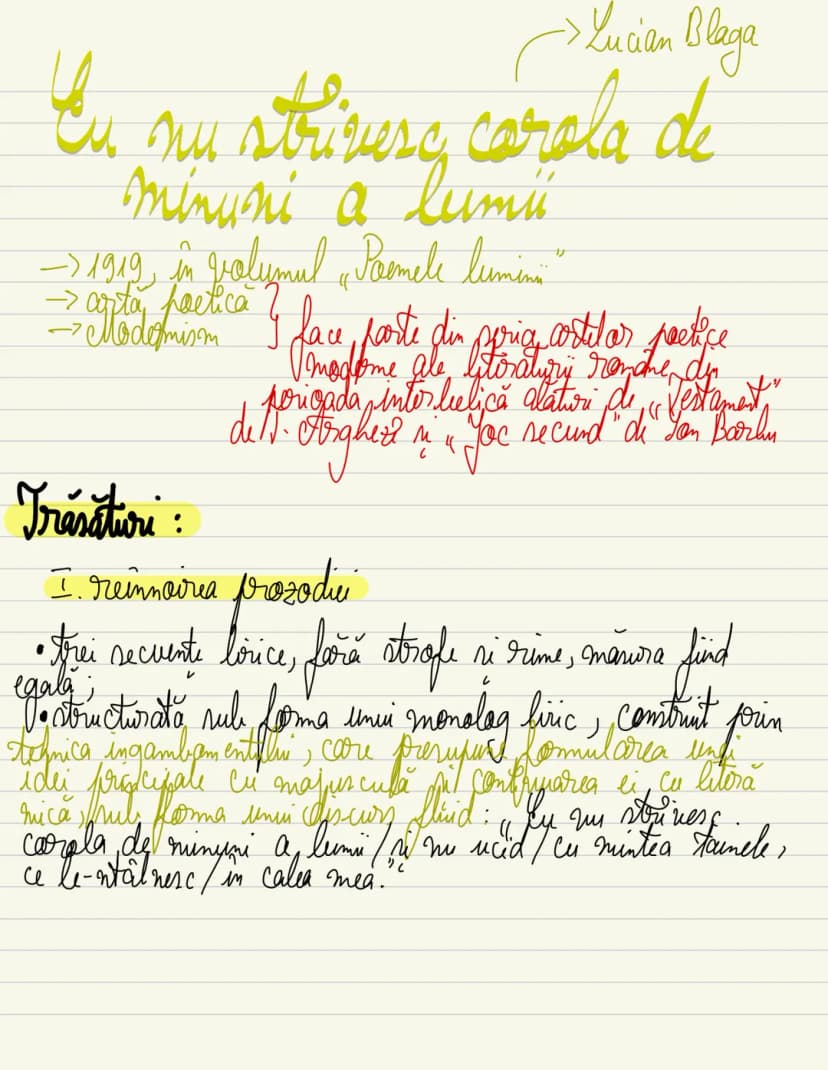 → Lucian Blaga
Eu nu strivesc corola de
minuni a lumii
→ 1919, în volumul „Poemele luminii”
→ artă poetică
→ Modernism
face parte din seria artelor poetice
moderne ale literaturii române din
perioada interbelică alături de „Testament”
de T. Arghezi și „Joc secund” de Ion Barbu
Trăsături :
I. reînnoirea prozodiei
• trei secvențe lirice, fără strofe și rime, măsura fiind
egală ;
• structurată sub forma unui monolog liric, construit prin
tehnica ingambamentului, care presupune formularea unei
idei principale cu majusculă și continuarea ei cu literă
mică, sub forma unui discurs fluid : „Eu nu strivesc
corola de minuni a lumii / și nu ucid / cu mintea tainele,
ce le-ntâlnesc / în calea mea.”